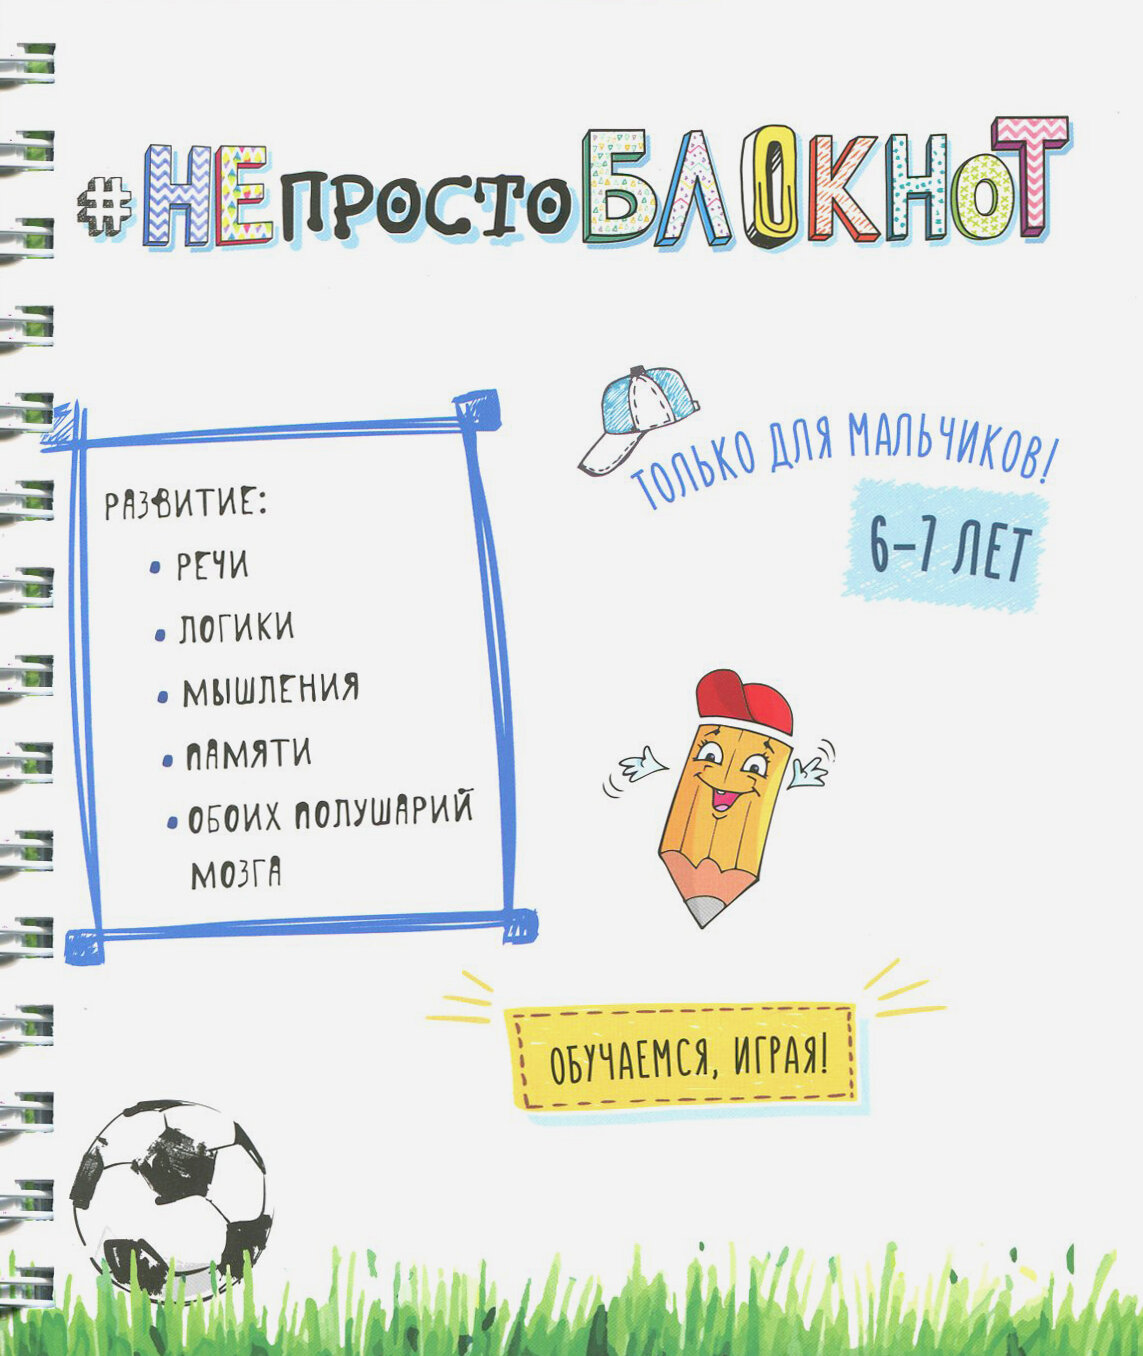 #НЕПРОСТОБЛОКНОТ
ТОЛЬКО ДЛЯ МАЛЬЧИКОВ!
6–7 ЛЕТ
РАЗВИТИЕ:
• РЕЧИ
• ЛОГИКИ
• МЫШЛЕНИЯ
• ПАМЯТИ
• ОБОИХ ПОЛУШАРИЙ
МОЗГА
ОБУЧАЕМСЯ, ИГРАЯ!